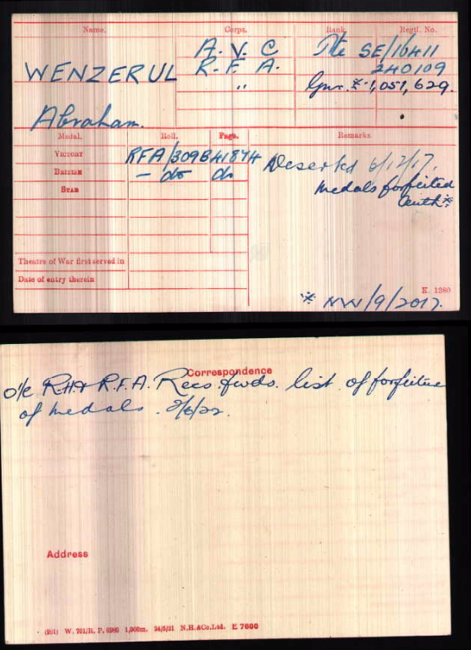 Name. Corps. Rank. Regtl. No.
WENZERUL A.V.C Pte SE/16411
R.F.A. 240109
" Gnr. * 1,051,629.
Abraham.
Medal. Roll. Page. Remarks.
VICTORY RFA/309B 41874 Deserted 6/12/17.
BRITISH - do do medals forfeited
STAR Auth *
Theatre of War first served in
Date of entry therein
K. 1380
* NW/9/2017.
Correspondence
O/C R.H.& R.F.A. Recs fwds. list of forfeiture
of medals. 2/6/22.
Address
W. 701/R. P. 1,500m. N.H.&Co.,Ltd. E 7600